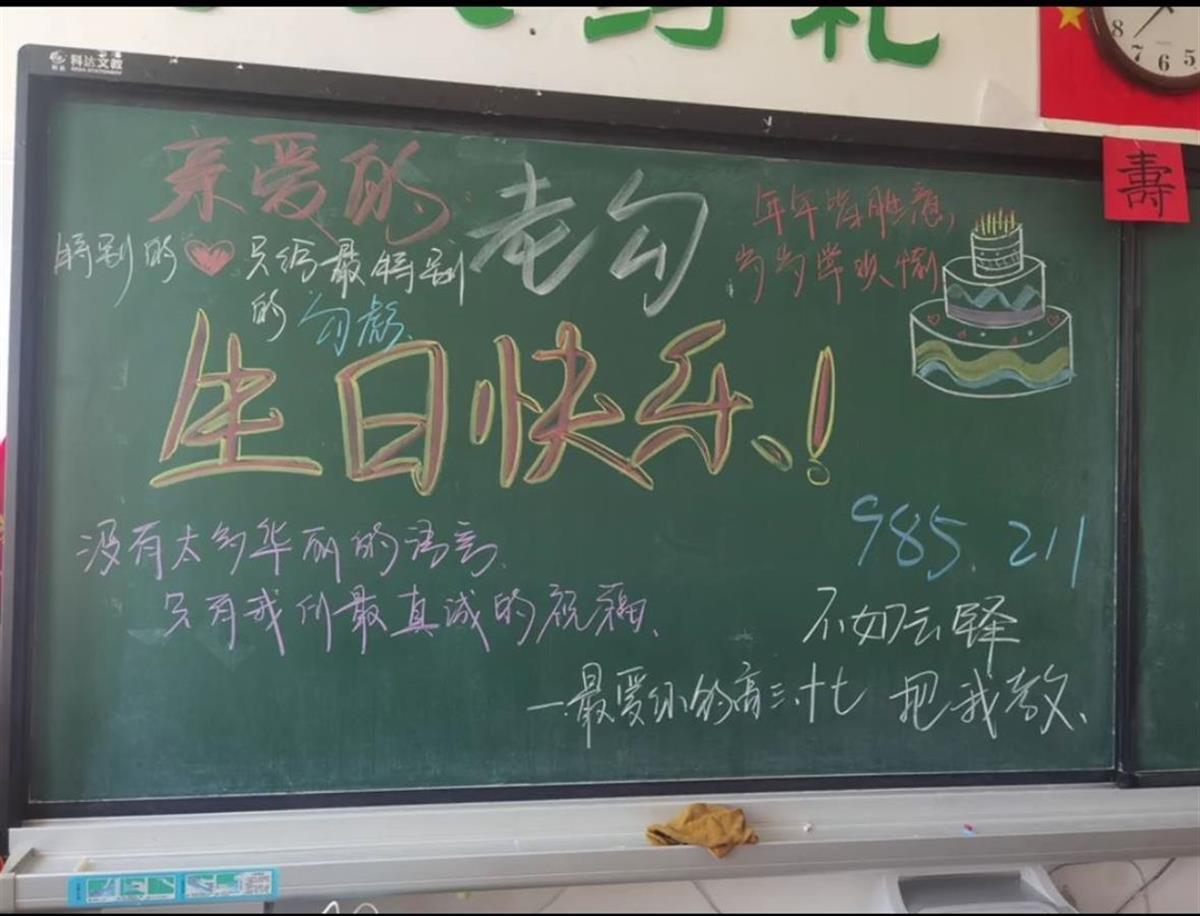 科达文教
8 7 6 5
壽
亲爱的
老勾
年年皆胜意,
岁岁常欢愉
特别的❤只给最特别
的 勾彪
生日快乐!
没有太多华丽的语言
只有我们最真诚的祝福
985 211
不如云铎
把我教
一最爱你的高三十七